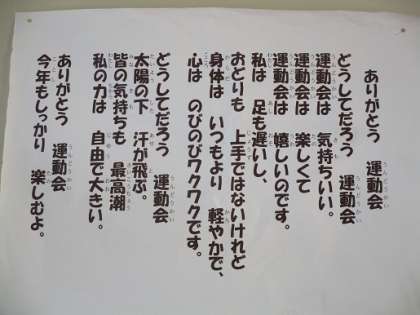 ありがとう 運動会
どうしてだろう 運動会
運動会は 気持ちいい。
運動会は 楽しくて
運動会は 嬉しいのです。
私は 足も遅いし、
おどりも 上手ではないけれど
身体は いつもより 軽やかで、
心は のびのびワクワクです。
どうしてだろう 運動会
太陽の下 汗が飛ぶ。
皆の気持ちも 最高潮
私の力は 自由で大きい。
ありがとう 運動会
今年もしっかり 楽しむよ。